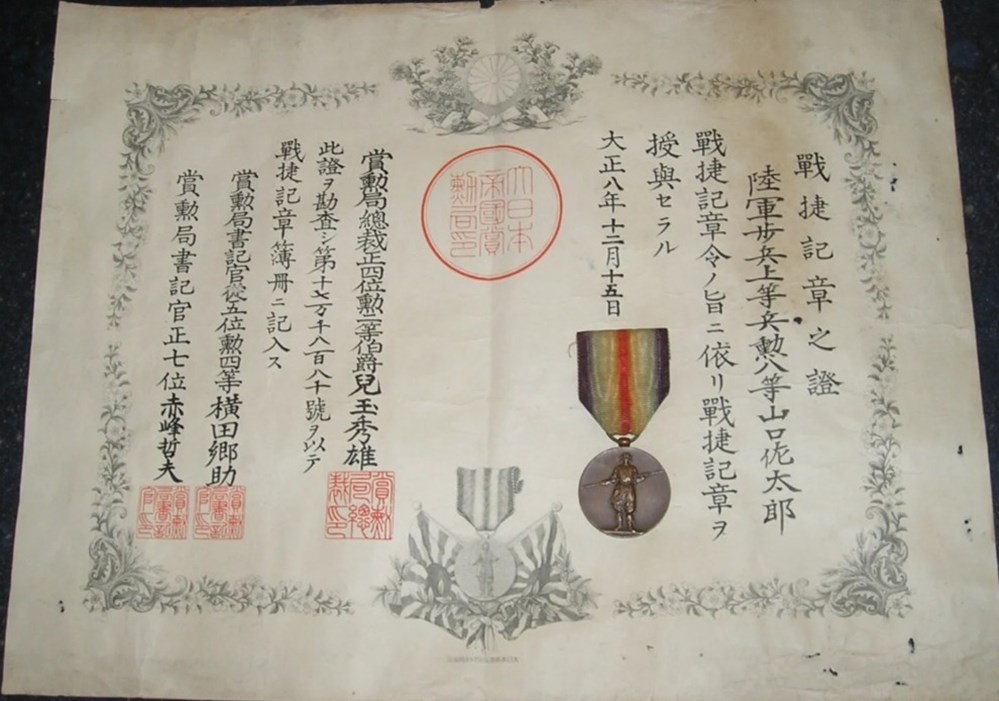 戰捷記章之證
陸軍步兵上等兵勲八等山口佐太郎
戰捷記章令ノ旨ニ依リ戰捷記章ヲ
授與セラル
大正八年十二月十五日
大日本
帝國賞
勲局印
賞勲局總裁正四位勲二等伯爵兒玉秀雄
賞勲
局總
裁印
此證ヲ勘査シ第十七万千八百八十號ヲ以テ
戰捷記章簿冊ニ記入ス
賞勲局書記官從五位勲四等橫田鄉助
賞勲
局書記
官印
賞勲局書記官正七位赤峰哲夫
賞勲
局書記
官印